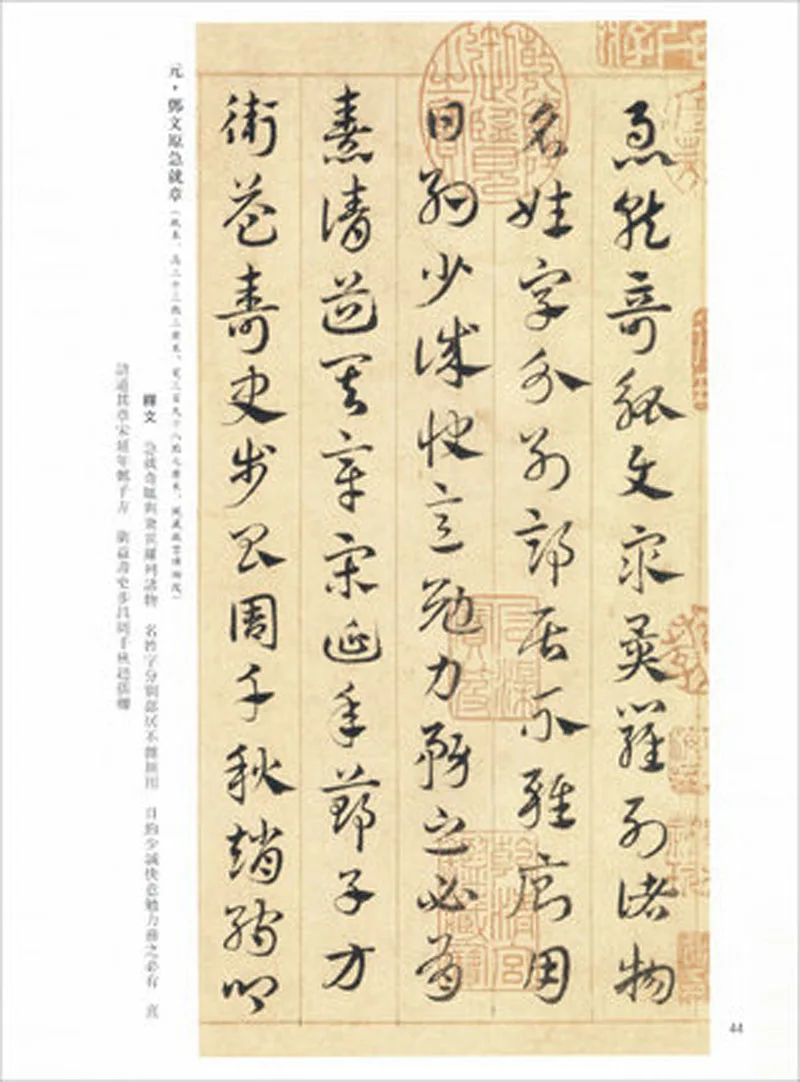 急就奇觚與衆異羅列諸物
名姓字分別部居不雜廁用
日約少誠快意勉力務之必有
憙請道其章宋延年鄭子方
衛益壽史步昌周千秋趙孺卿
元·鄧文原急就章（紙本，高二十三點三厘米，寬三百九十八點七厘米，現藏故宮博物院）
釋文 急就奇觚與衆異羅列諸物 名姓字分別部居不雜廁用 日約少誠快意勉力務之必有 憙
請道其章宋延年鄭子方 衛益壽史步昌周千秋趙孺卿
44